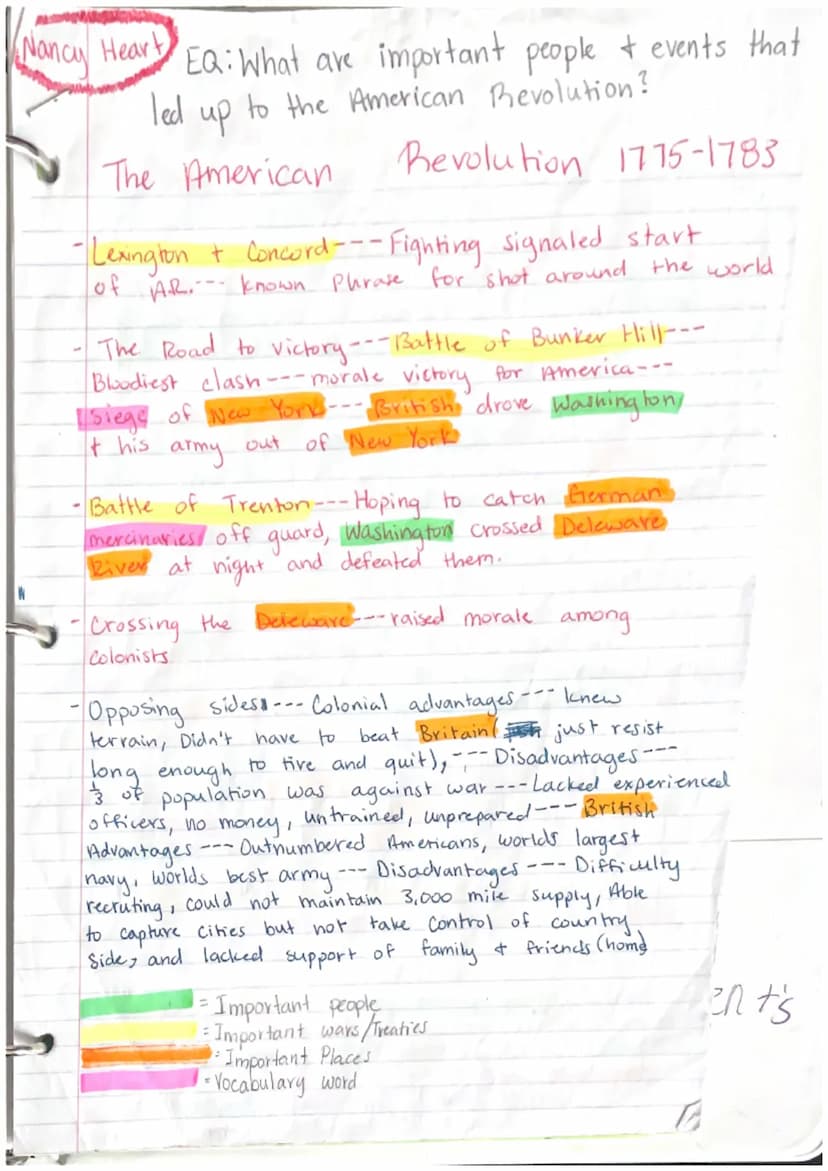 Nancy Heart
EQ: What are important people + events that
led up to the American Revolution?
The American Revolution 1775-1783
- Lexington + Concord --- Fighting signaled start
of A.R. --- known Phrase for shot around the world
- The Road to victory --- Battle of Bunker Hill ---
Bloodiest clash --- morale victory for America ---
Siege of New York --- British drove Washington
+ his army out of New York
- Battle of Trenton --- Hoping to catch German
mercinaries off guard, Washington crossed Deleware
River at night and defeated them.
- Crossing the Deleware --- raised morale among
colonists
- Opposing sides --- Colonial advantages --- knew
terrain, Didn't have to beat Britain ( just resist
long enough to tire and quit), --- Disadvantages ---
1/3 of population was against war --- Lacked experienced
officers, no money, untrained, unprepared --- British
Advantages --- Outnumbered Americans, worlds largest
navy, worlds best army --- Disadvantages --- Difficulty
recruting, could not maintain 3,000 mile supply, Able
to capture cities but not take control of country
side, and lacked support of family + friends (home)
= Important people
= Important wars/Treaties
= Important Places
= Vocabulary word